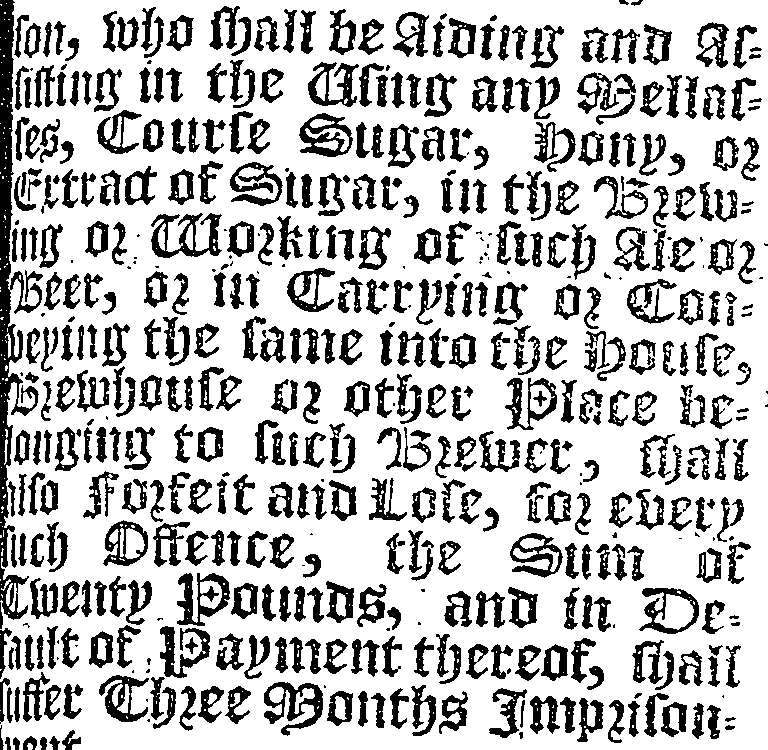 ſon, who ſhall be Aiding and Aſ-
ſiſting in the Uſing any Mellaſ-
ſes, Courſe Sugar, Hony, or
Extract of Sugar, in the Brew-
ing or Working of ſuch Ale or
Beer, or in Carrying or Con-
veying the ſame into the Houſe,
Brewhouſe or other Place be-
longing to ſuch Brewer, ſhall
alſo Forfeit and Loſe, for every
ſuch Offence, the Sum of
Twenty Pounds, and in De-
fault of Payment thereof, ſhall
ſuffer Three Months Impriſon-
ment